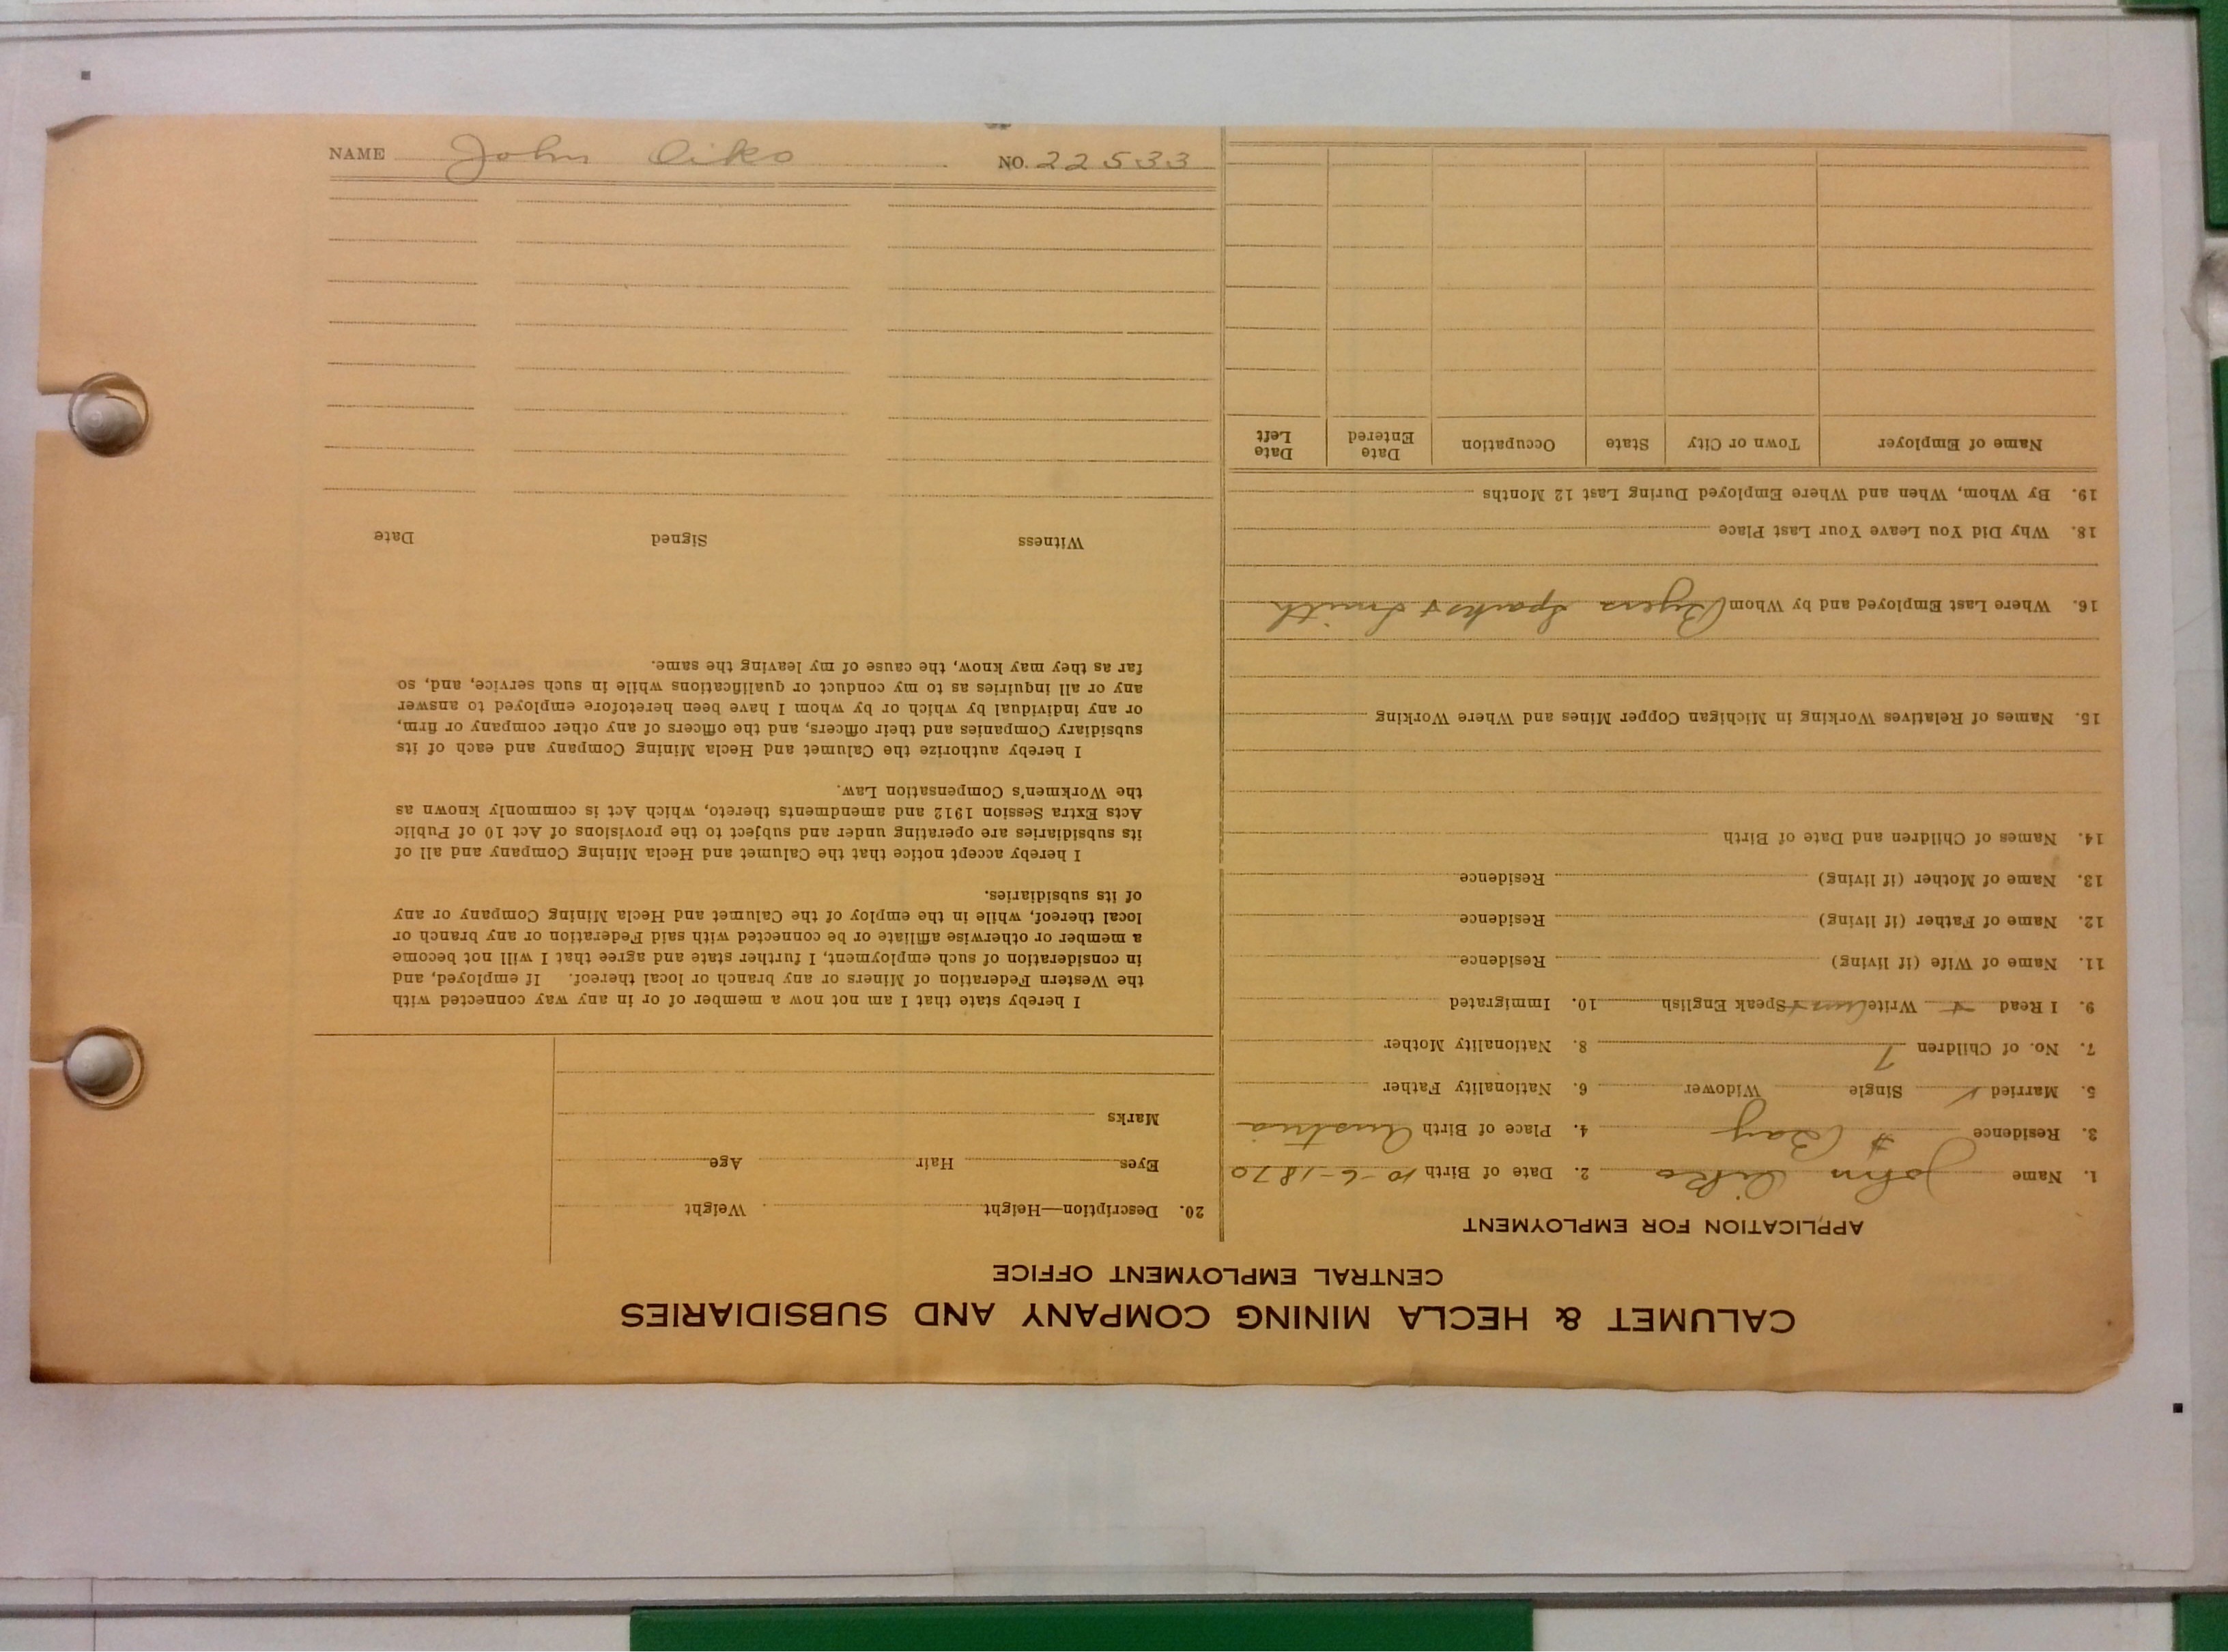 CALUMET & HECLA MINING COMPANY AND SUBSIDIARIES
CENTRAL EMPLOYMENT OFFICE
APPLICATION FOR EMPLOYMENT
1. Name John 2. Date of Birth 10-6-1870
3. Residence # Bay 4. Place of Birth Austria
5. Married ✓ Single Widower 6. Nationality Father
7. No. of Children 7 8. Nationality Mother
9. I Read + Write Aus + Speak English 10. Immigrated
11. Name of Wife (if living) Residence
12. Name of Father (if living) Residence
13. Name of Mother (if living) Residence
14. Names of Children and Date of Birth
15. Names of Relatives Working in Michigan Copper Mines and Where Working
16. Where Last Employed and by Whom Byers Sparks & Smith
18. Why Did You Leave Your Last Place
19. By Whom, When and Where Employed During Last 12 Months
Name of Employer Town or City State Occupation Date Entered Date Left
20. Description—Height Weight
Eyes Hair Age
Marks
I hereby state that I am not now a member of or in any way connected with
the Western Federation of Miners or any branch or local thereof. If employed, and
in consideration of such employment, I further state and agree that I will not become
a member or otherwise affiliate or be connected with said Federation or any branch or
local thereof, while in the employ of the Calumet and Hecla Mining Company or any
of its subsidiaries.
I hereby accept notice that the Calumet and Hecla Mining Company and all of
its subsidiaries are operating under and subject to the provisions of Act 10 of Public
Acts Extra Session 1912 and amendments thereto, which Act is commonly known as
the Workmen's Compensation Law.
I hereby authorize the Calumet and Hecla Mining Company and each of its
subsidiary Companies and their officers, and the officers of any other company or firm,
or any individual by which or by whom I have been heretofore employed to answer
any or all inquiries as to my conduct or qualifications while in such service, and, so
far as they may know, the cause of my leaving the same.
Witness Signed Date
NAME John NO. 22533